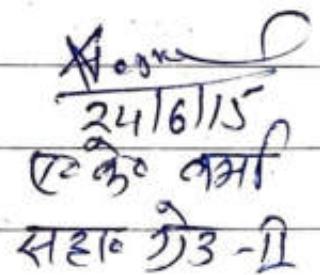 24/6/15
ए० के० वर्मा
सहा० ग्रेड-II